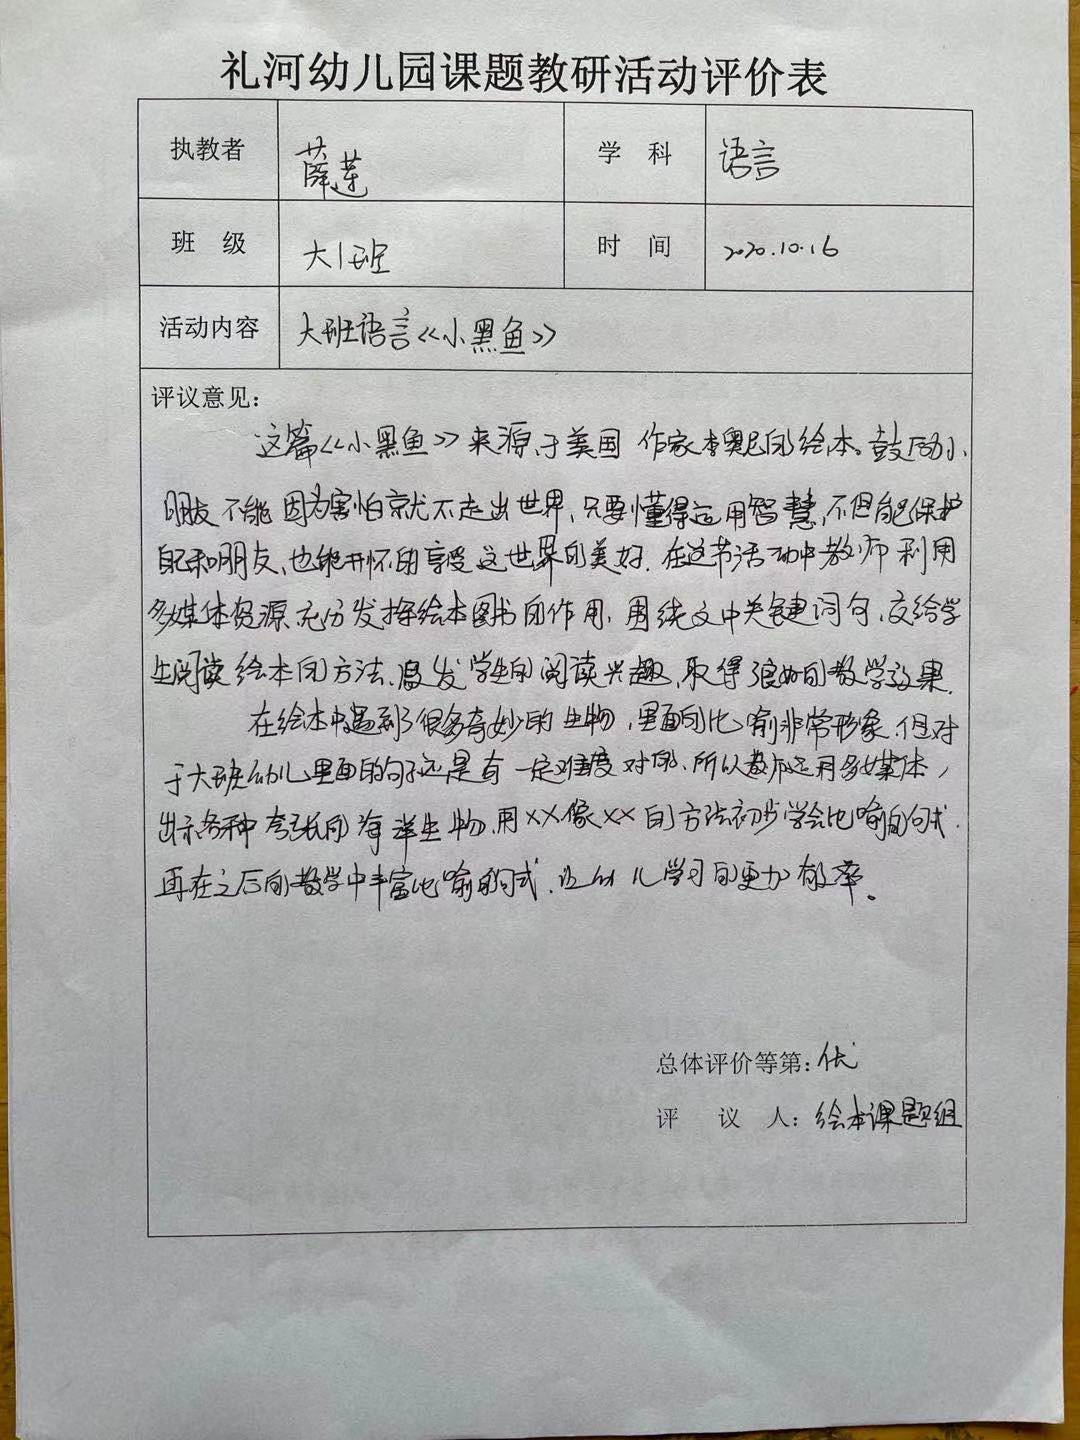 礼河幼儿园课题教研活动评价表
执教者 薛莲 学 科 语言
班 级 大1班 时 间 2020.10.16
活动内容 大班语言《小黑鱼》
评议意见:
这篇《小黑鱼》来源于美国作家李奥尼的绘本。鼓励小
朋友不能因为害怕就不走出世界,只要懂得运用智慧,不但能保护
自己和朋友,也能开怀的享受这世界的美好.在这节活动中教师利用
多媒体资源,充分发挥绘本图书的作用,围绕文中关键词句,交给学
生阅读绘本的方法,激发学生的阅读兴趣,取得很好的教学效果.
在绘本中遇到了很多奇妙的生物,里面的比喻非常形象,但对
于大班幼儿里面的句子还是有一定难度,所以教师运用多媒体,
出示各种夸张的海洋生物,用××像××的方法初步学会比喻的句式.
再在之后的教学中丰富比喻的句式,让幼儿学习的更加有效率。
总体评价等第:优
评 议 人:绘本课题组